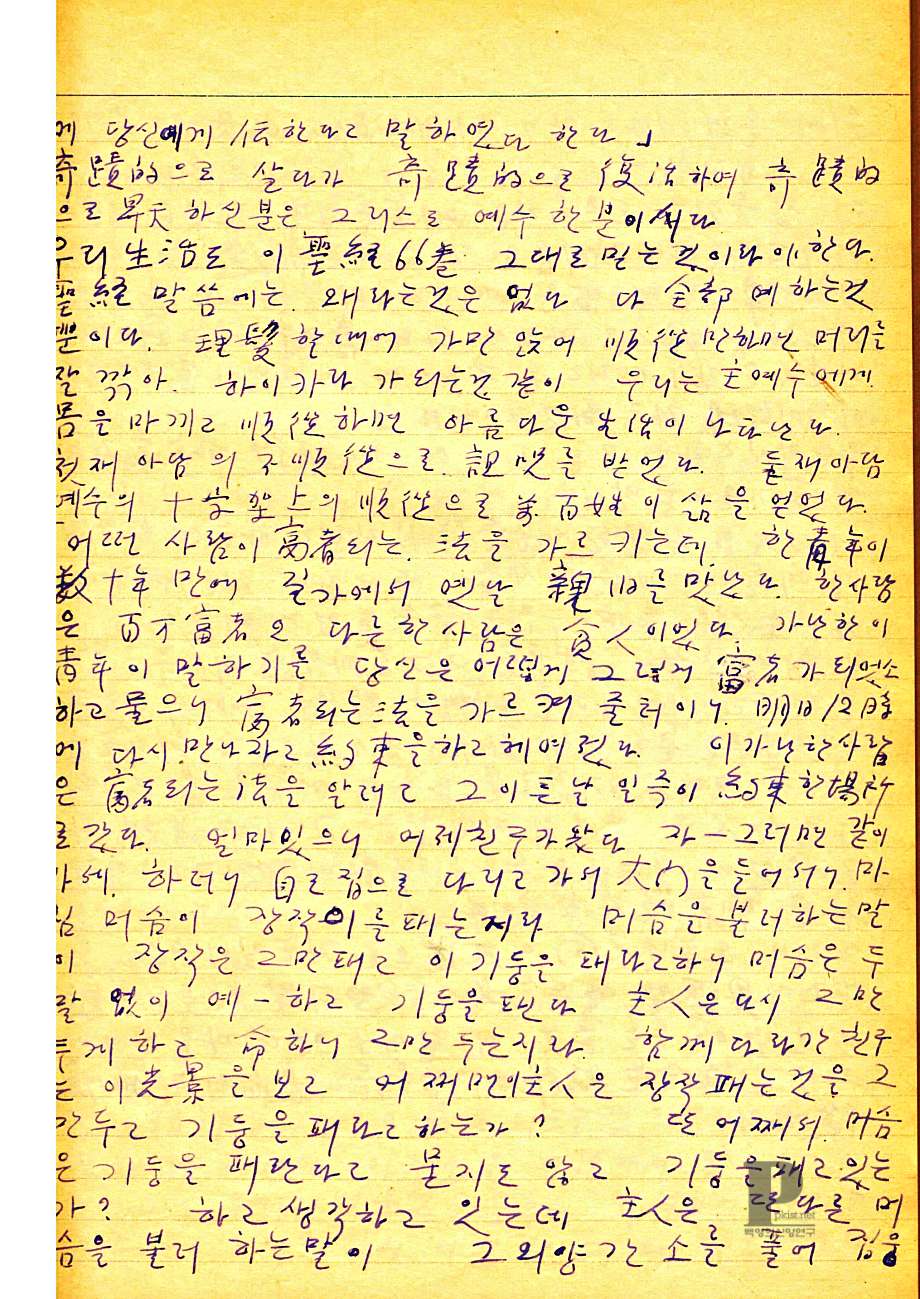 에 당신에게 伝한다고 말하였다 한다」
奇蹟的으로 살다가 奇蹟的으로 復活하여 奇蹟的
으로 昇天하신분은 그리스도 예수 한분이시다
우리 生活도 이 聖経 66巻 그대로 믿는것이라야 한다.
聖経 말씀에는 왜라는것은 없다 다 全部 예하는것
뿐이다. 理髮할때에 가만 앉어 順從만하면 머리를
잘 깎아. 하이카라 가되는것 같이 우리는 主예수에게
몸을 마끼고 順從하면 아름다운 生活이 나타난다.
첫재 아담의 不順從으로 詛呪를 받었다. 둘재아담
예수의 十字架上의 順從으로 萬百姓이 삶을 얻었다.
어떤 사람이 富者되는 法을 가르키는데 한靑年이
数十年만에 길가에서 옛날 親旧를 맛났다. 한사람
은 百万富者요 다른한사람은 貧人이였다. 가난한이
靑年이 말하기를 당신은 어떻게 그렇게 富者가되엿소
하고 물으니 富者되는法을 가르켜 줄터이니. 明日 12時
에 다시 만나자고 約束을하고 헤여젔다. 이가난한사람
은 富者되는 法을 알려고 그이튼날 일즉이 約束한場所
로 갔다. 얼마있으니 어제친구가왔다 자ー그러면 같이
가세. 하더니 自己집으로 다리고 가서 大門을들어서니. 마
침 머슴이 장작이를패는지라 머슴을불러하는말
이 장작은 그만패고 이 기둥을 패라고하니 머슴은 두
말 없이 예ー하고 기둥을 팬다 主人은 다시 그만
두게하고 命하니 그만 두는지라. 함께 다라간 친구
는 이光景을 보고 어찌면主人은 장작패는것을 그
만두고 기둥을패라고하는가? 또 어찌서 머슴
은 기둥을 패란다고 묻지도 않고 기둥을패고있는
가? 하고생각하고 있는데 主人은 또다른 머
슴을 불러 하는말이 그외양간 소를 풀어 집웅
P
pkist.net
백영희신앙연구